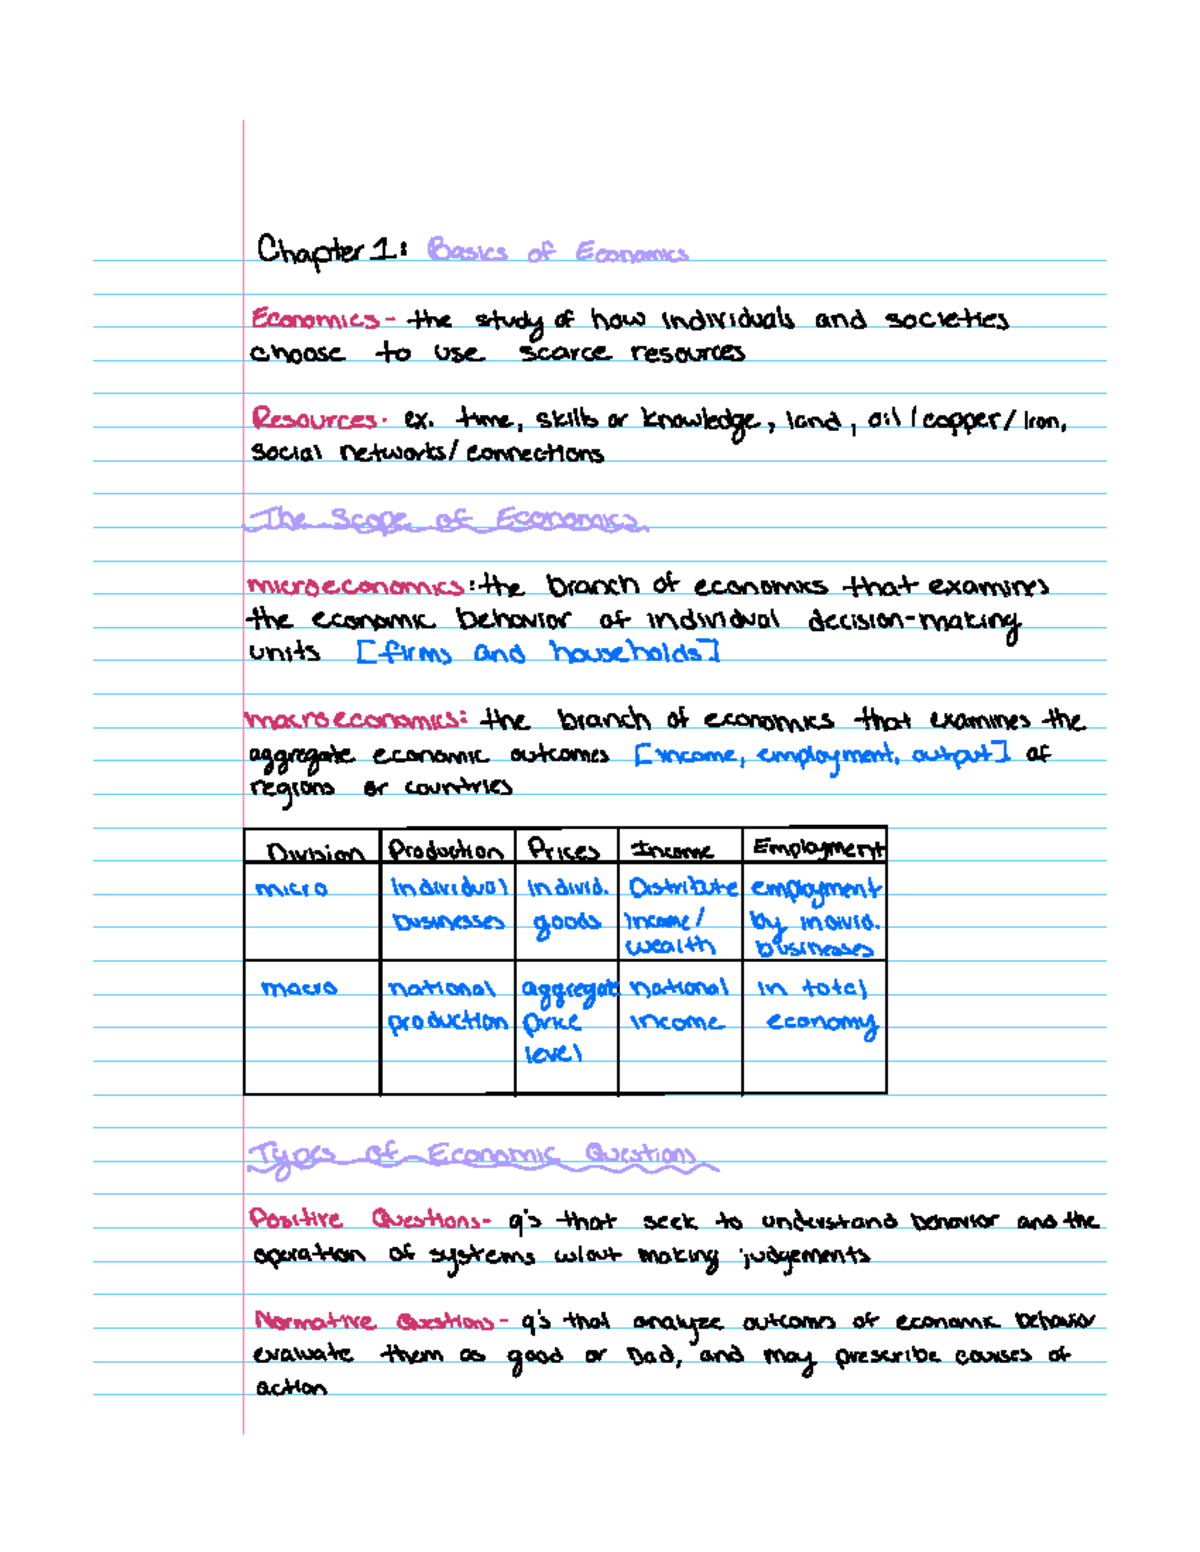 Chapter 1: Basics of Economics
Economics - the study of how individuals and societies
choose to use scarce resources
Resources - ex. time, skills or knowledge, land, oil/copper/iron,
social networks/connections
The Scope of Economics
microeconomics: the branch of economics that examines
the economic behavior of individual decision-making
units [firms and households]
macroeconomics: the branch of economics that examines the
aggregate economic outcomes [income, employment, output] of
regions or countries
Division Production Prices Income Employment
micro individual individ. Distribute employment
businesses goods income/ by individ.
wealth businesses
macro national aggregate national in total
production price income economy
level
Types of Economic Questions
Positive Questions- q's that seek to understand behavior and the
operation of systems w/out making judgements
Normative Questions- q's that analyze outcomes of economic behavior
evaluate them as good or bad, and may prescribe courses of
action